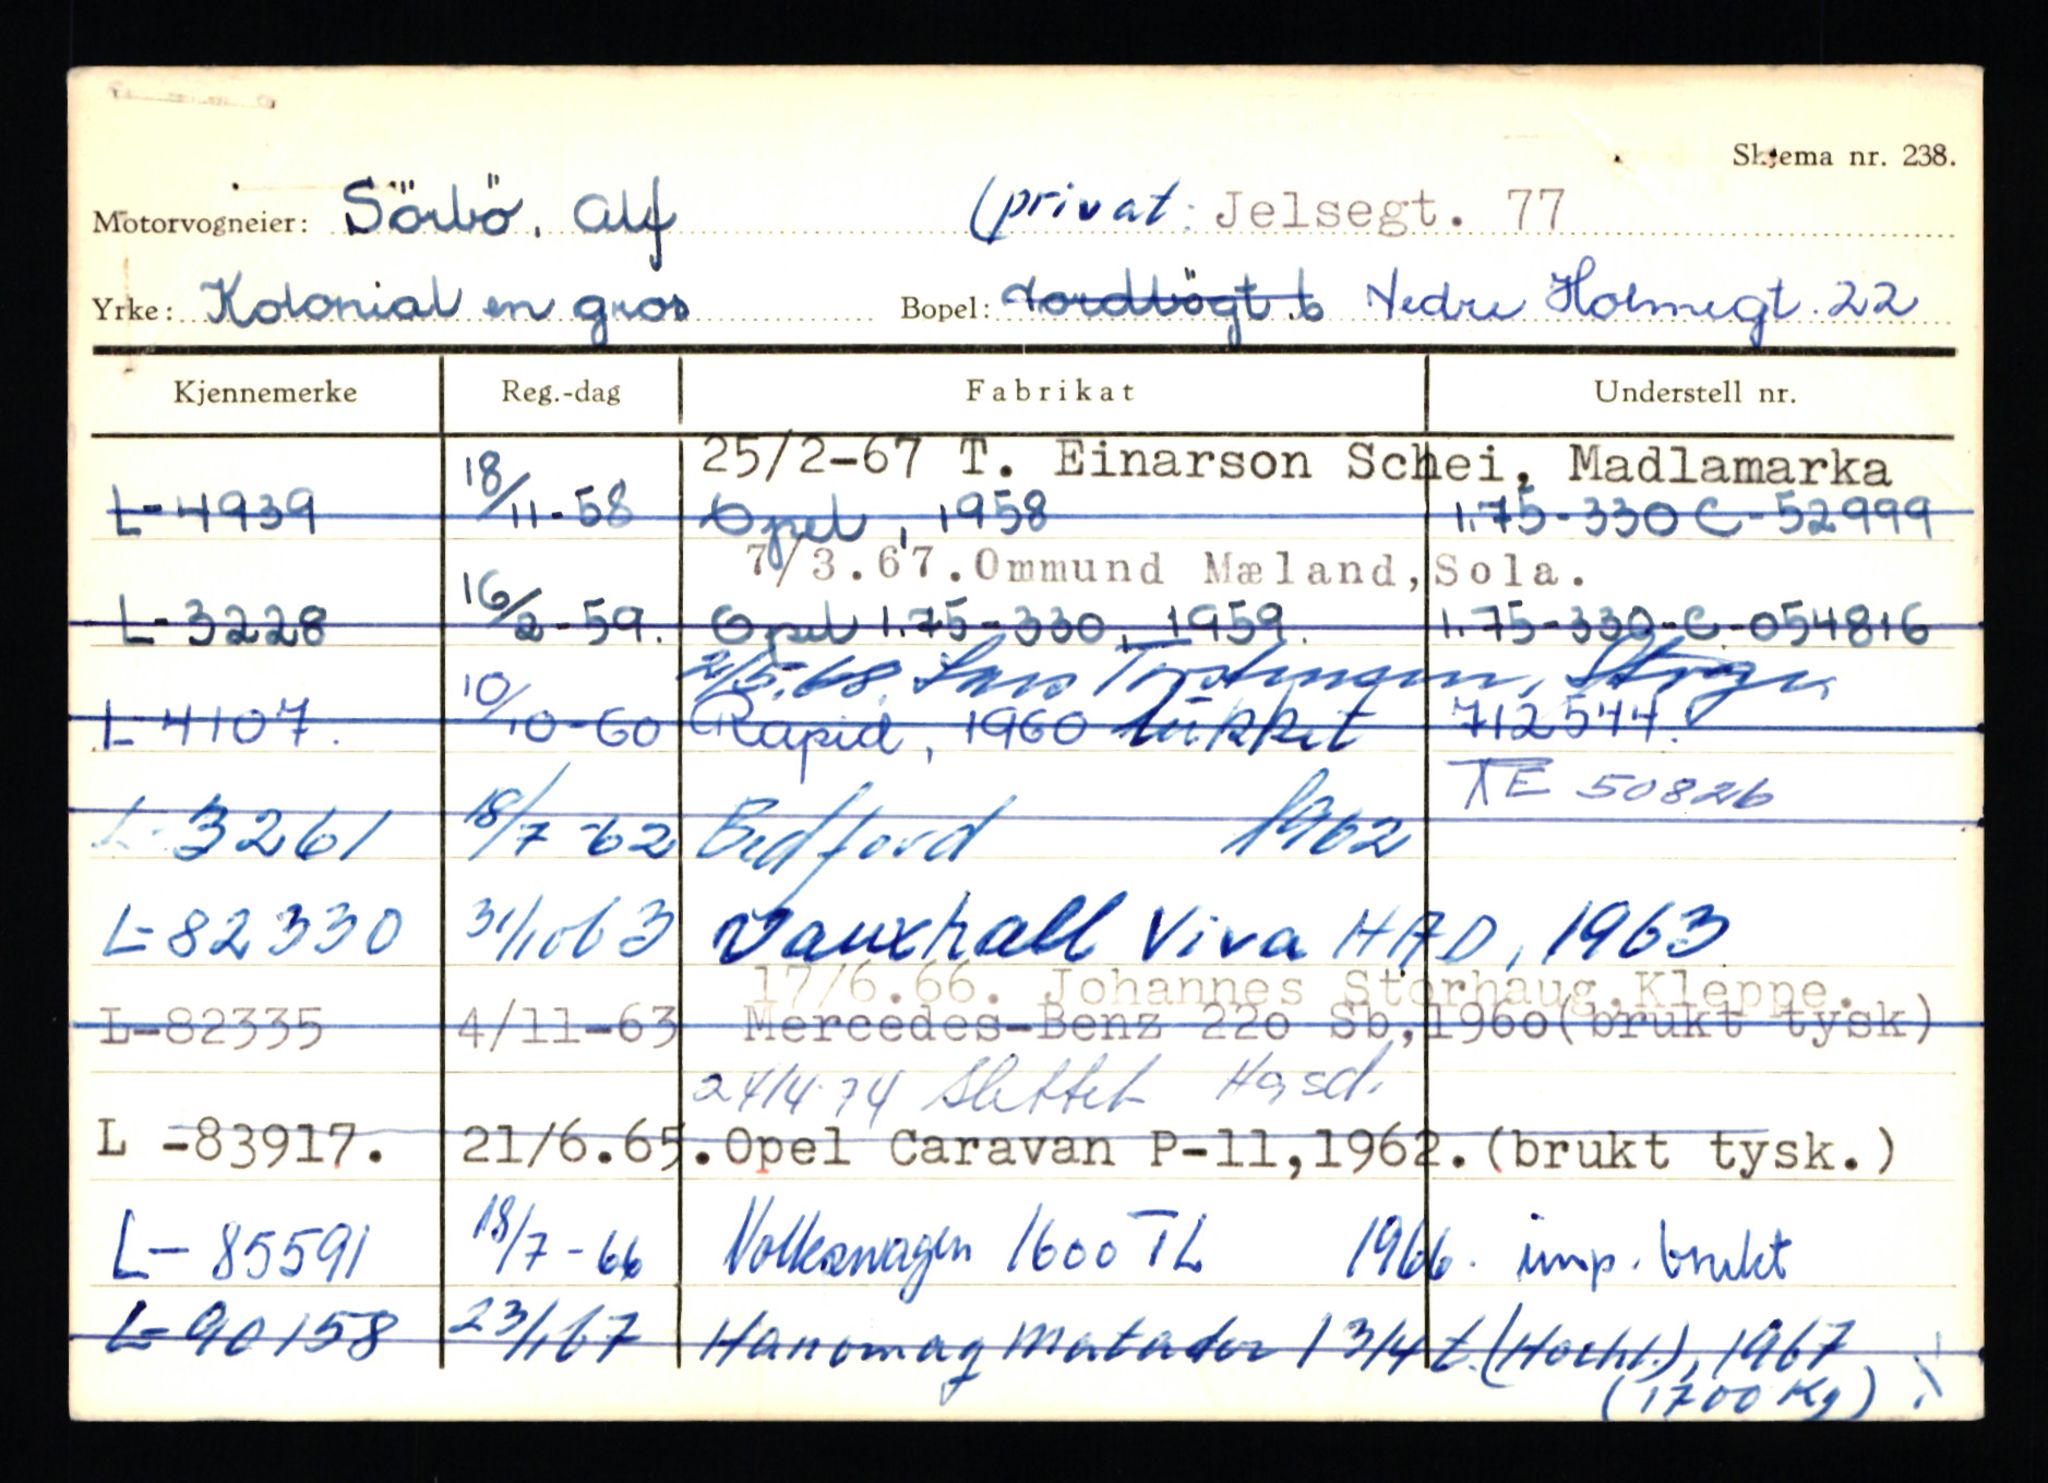 Skjema nr. 238.
Motorvogneier: Sörbö, Alf (privat: Jelsegt. 77
Yrke: Kolonial en gros Bopel: Nordbögt. 6 Nedre Holmegt. 22
Kjennemerke Reg.-dag Fabrikat Understell nr.
25/2-67 T. Einarson Schei, Madlamarka
L-4939 18/11-58 Opel, 1958 1.75-330 C-52999
7/3.67. Ommund Mæland, Sola.
L-3228 16/2-59. Opel 1.75-330, 1959. 1.75-330-C-054816
2/5.68. Lars
L-4107. 10/10-60 Rapid, 1960 lukket 712544.
TE 50826
L-3261 18/7-62 Bedford 1962
L-82330 31/10 63 Vauxhall Viva HAD, 1963
17/6.66. Johannes Storhaug, Kleppe.
L-82335 4/11-63 Mercedes-Benz 220 Sb, 1960 (brukt tysk)
24/4-74 Slettet
L -83917. 21/6.65. Opel Caravan P-11, 1962. (brukt tysk.)
L-85591 18/7-66 Volkswagen 1600 TL 1966. imp. brukt
L-90158 23/1 67 Hanomag Matador 1 3/4 t. (Hocht.), 1967
(1700 Kg)